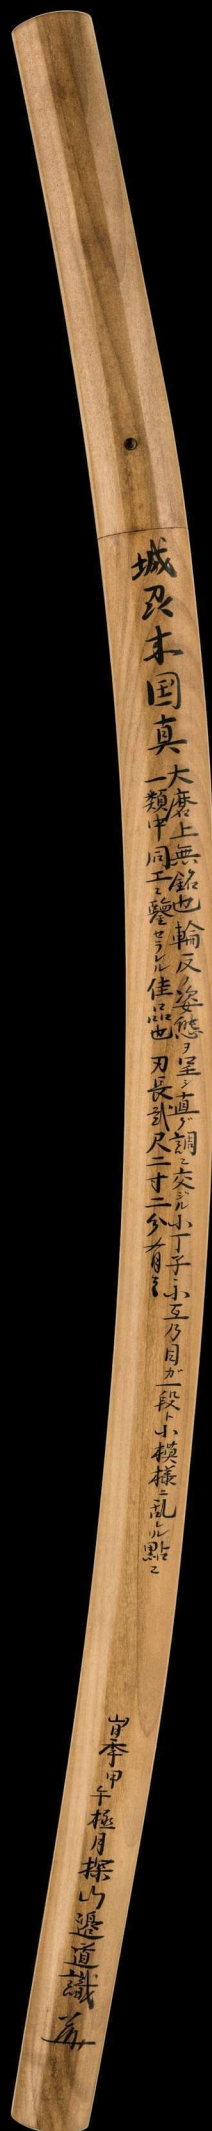 城州来国真
大磨上無銘也輪反ノ姿態ヲ呈シ直グ調ニ交ジル小丁子小互乃目ガ一段ト小模様ニ乱ルル點ニ
一類中同工ト鑒セラルル佳品也 刃長貳尺二寸二分有之
旹季甲午極月探山邉道識